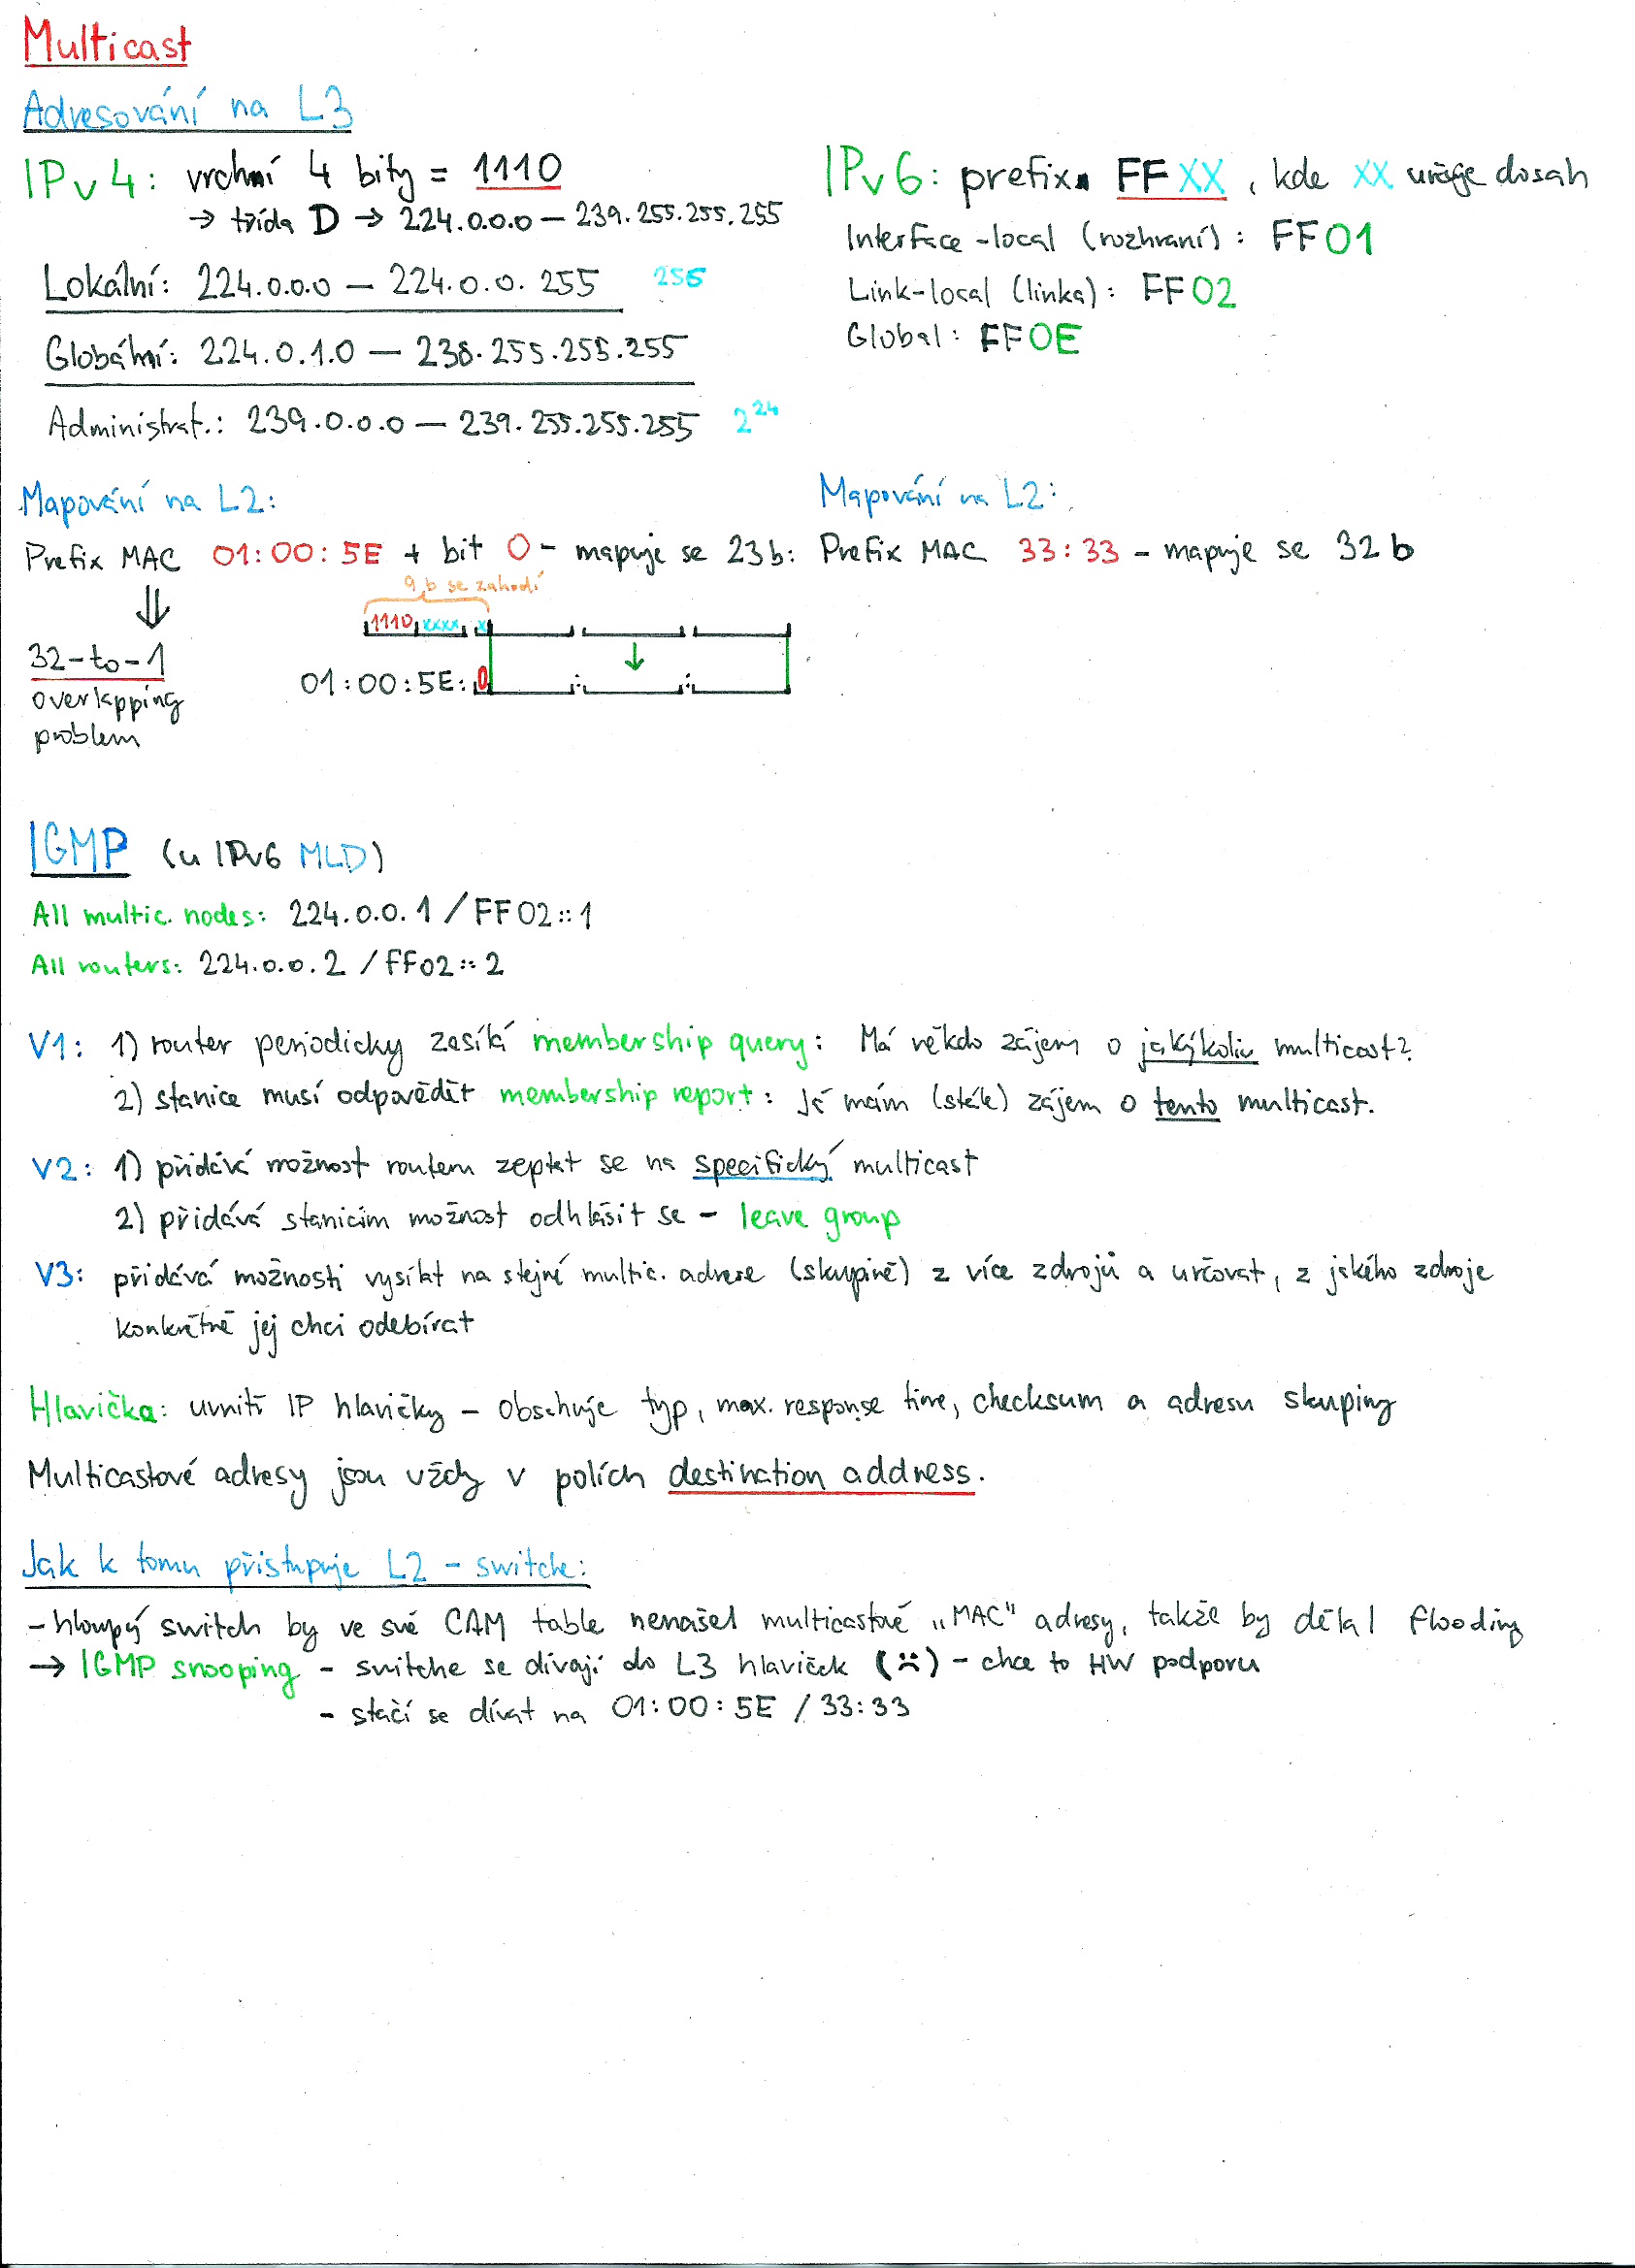 Multicast
Adresování na L3
IPv4: vrchní 4 bity = 1110
→ třída D → 224.0.0.0 – 239.255.255.255
Lokální: 224.0.0.0 – 224.0.0.255 256
Globální: 224.0.1.0 – 238.255.255.255
Administrat.: 239.0.0.0 – 239.255.255.255 2^24
IPv6: prefix FFXX, kde XX určuje dosah
Interface-local (rozhraní): FF01
Link-local (linka): FF02
Global: FF0E
Mapování na L2:
Prefix MAC 01:00:5E + bit 0 – mapuje se 23b:
9b se zahodí
1110 xxxx x
01:00:5E: 0 : :
⇓
32-to-1
overlapping
problem
Mapování na L2:
Prefix MAC 33:33 – mapuje se 32b
IGMP (u IPv6 MLD)
All multic. nodes: 224.0.0.1 / FF02::1
All routers: 224.0.0.2 / FF02::2
V1: 1) router periodicky zasílá membership query: Má někdo zájem o jakýkoliv multicast?
2) stanice musí odpovědět membership report: Já mám (stále) zájem o tento multicast.
V2: 1) přidává možnost routeru zeptat se na specifický multicast
2) přidává stanicím možnost odhlásit se – leave group
V3: přidává možnosti vysílat na stejné multic. adrese (skupině) z více zdrojů a určovat, z jakého zdroje
konkrétně jej chci odebírat
Hlavička: uvnitř IP hlavičky – obsahuje typ, max. response time, checksum a adresu skupiny
Multicastové adresy jsou vždy v polích destination address.
Jak k tomu přistupuje L2 – switche:
– hloupý switch by ve své CAM table nenašel multicastové „MAC" adresy, takže by dělal flooding
→ IGMP snooping – switche se dívají do L3 hlaviček (:() – chce to HW podporu
– stačí se dívat na 01:00:5E / 33:33